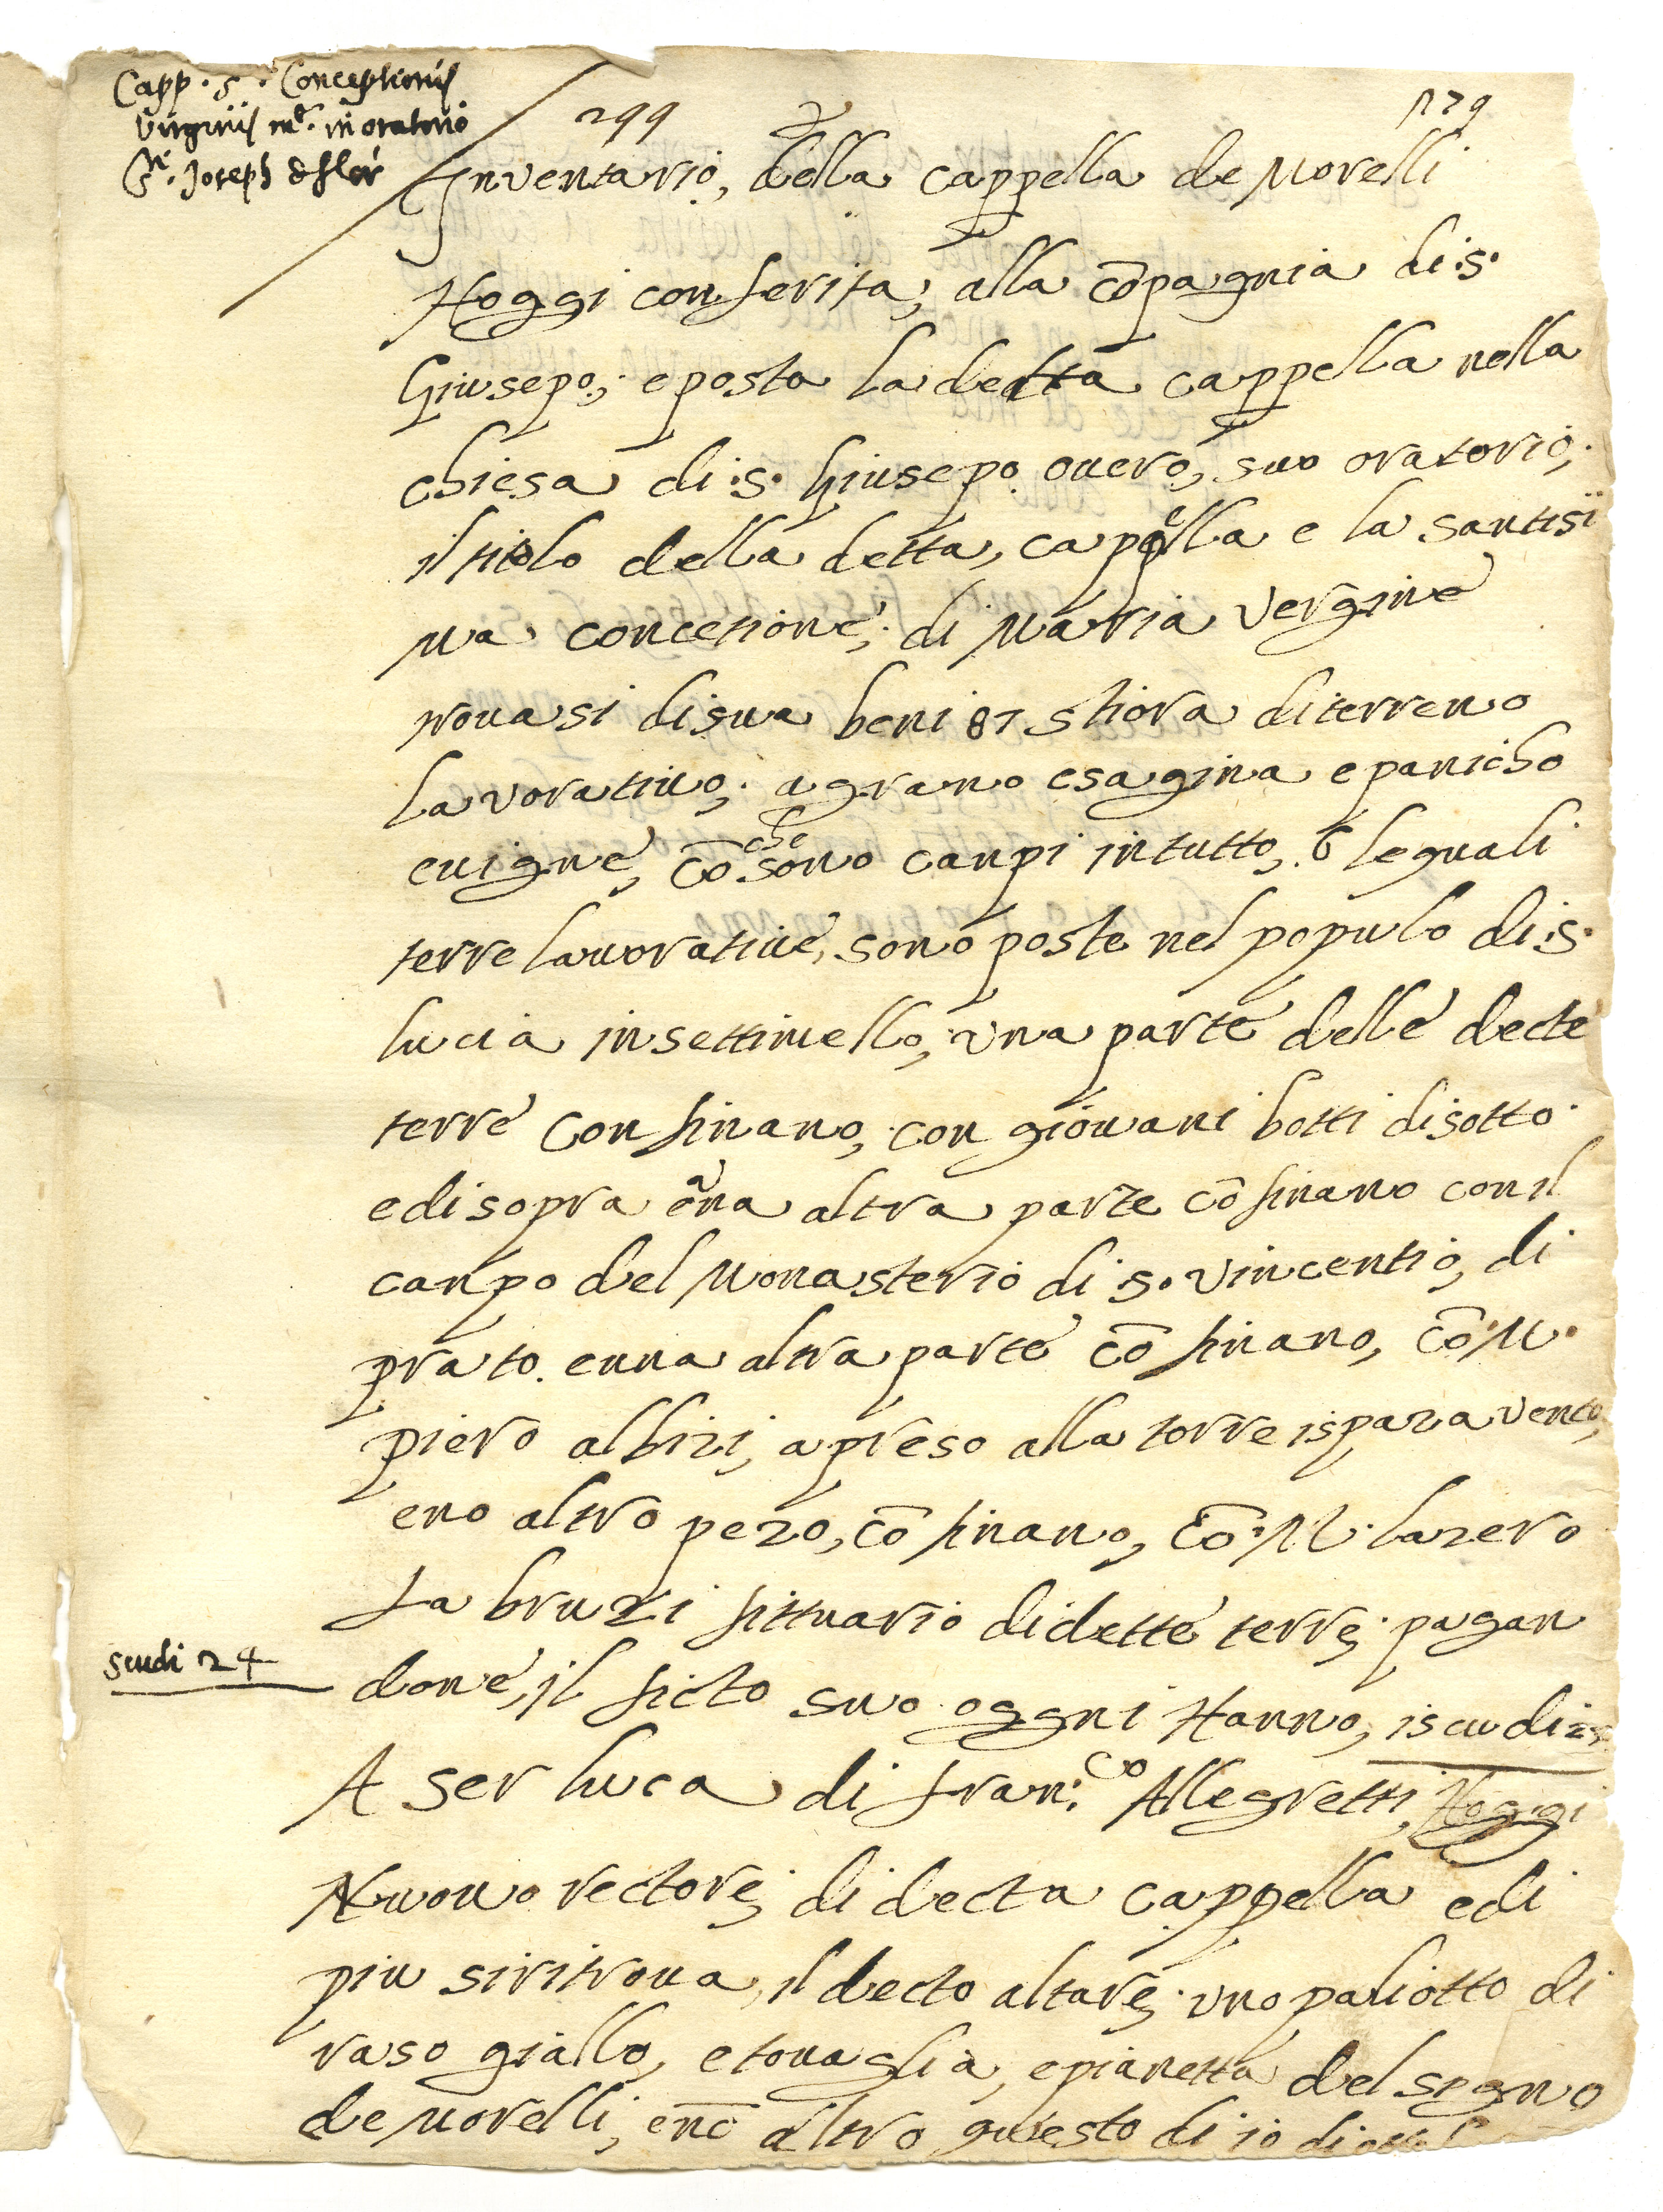 Capp. S. Conceptionis
Virginis m.e in oratorio
S.ti Joseph de flor
299
179
Inventario, della cappella de Morelli
Hoggi conferita, alla cōpagnia di .s.
Giusepo; e posta la detta cappella nella
chiesa di .s. Giusepo overo, suo oratorio,
il titolo della detta, cappella e la santisi
ma concetione; di Maria Vergine
trovasi di sua beni 87 stiora di terreno
lavorativo; a grano esagina e panicho
e vigne, cō che sono canpi in tutto, 6 le quali
terre lavorative, sono poste nel populo di .s.
lucia in settimello, una parte delle decte
terre confinano, con giovani botti di sotto
e di sopra e una altra parte cōfinano con il
canpo del Monasterio di s. vincentio, di
prato. e una altra parte cō finano, cō .M.
piero albizi, apreso alla torre ispazavento,
e no altro pezo, cō finano, cō .M. lazero
fabruzi fittuario di dette terre; pagan
done, il ficto suo oggni Hanno, iscudi 24
scudi 24
A ser luca di fran:co Allegretti, Hoggi
Nuovo rectore; di decta cappella e di
piu si ritrova, il decto altare; uno paliotto di
raso giallo, e tovaglia, e pianetta del segno
de morelli, e nō altro questo di 10 di